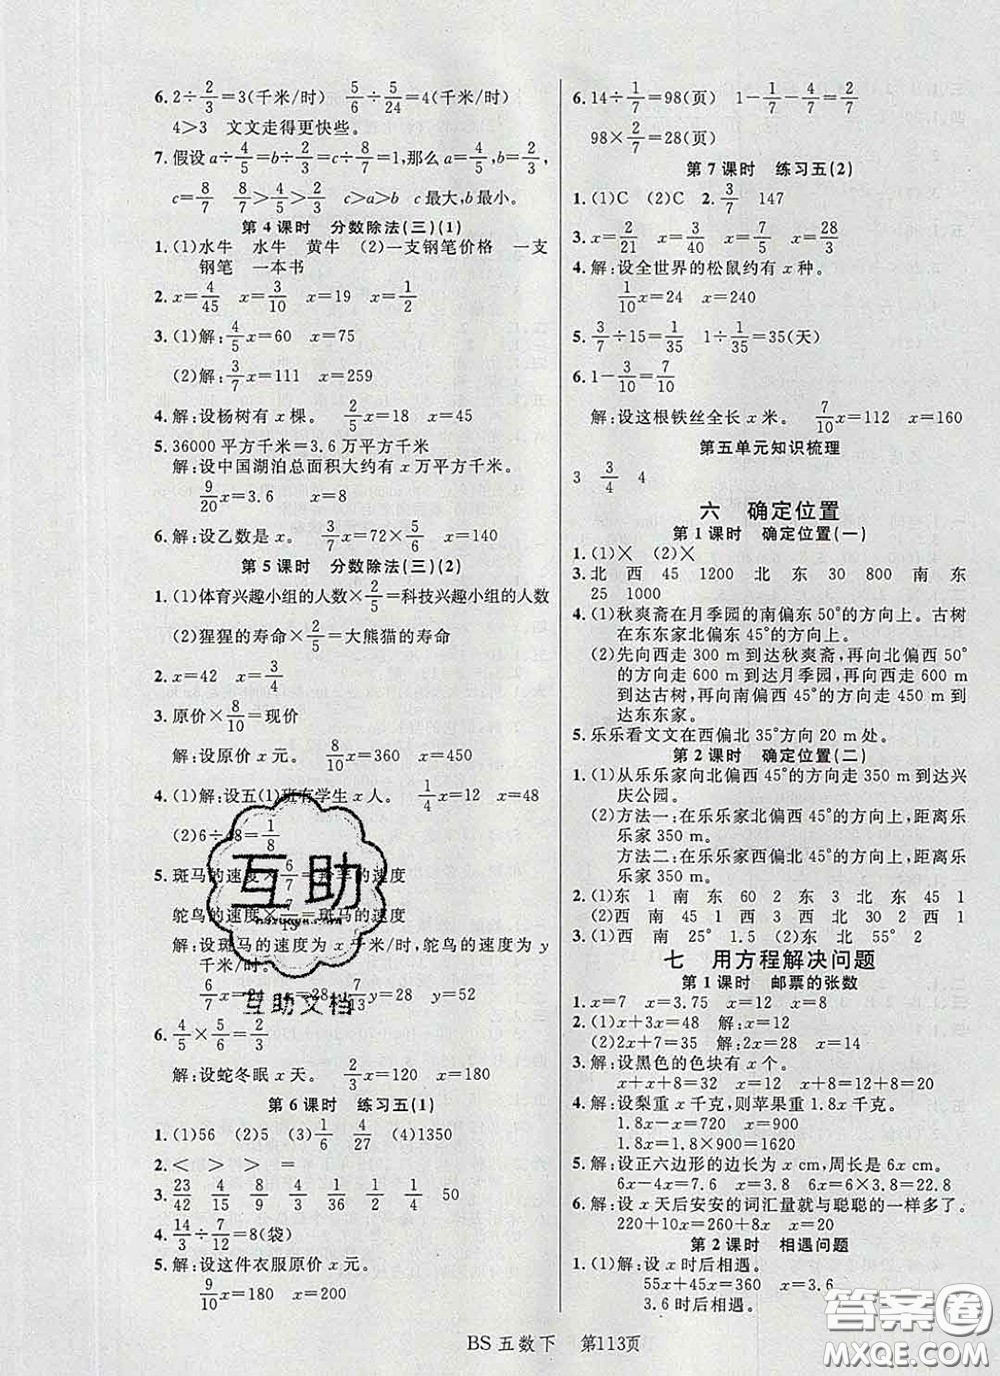 6. 2÷2/3=3(千米/时)  5/6÷5/24=4(千米/时)
4>3  文文走得更快些。
7. 假设a÷4/5=b÷2/3=c÷8/7=1,那么a=4/5,b=2/3,
c=8/7  8/7>4/5>2/3  c>a>b  c最大,b最小。
第4课时  分数除法(三)(1)
1. (1)水牛  水牛  黄牛  (2)一支钢笔价格  一支
钢笔  一本书
2. x=4/45  x=3/10  x=19  x=1/2
3. (1)解:4/5x=60  x=75
(2)解:3/7x=111  x=259
4. 解:设杨树有x棵。  2/5x=18  x=45
5. 36000平方千米=3.6万平方千米
解:设中国湖泊总面积大约有x万平方千米。
9/20x=3.6  x=8
6. 解:设乙数是x。  3/7x=72×5/6  x=140
第5课时  分数除法(三)(2)
1. (1)体育兴趣小组的人数×2/5=科技兴趣小组的人数
(2)猩猩的寿命×2/5=大熊猫的寿命
2. x=42  x=3/4
3. 原价×8/10=现价
解:设原价x元。  8/10x=360  x=450
4. (1)解:设五(1)班有学生x人。  1/4x=12  x=48
(2)6÷48=1/8
5. 斑马的速度×6/7=羚羊的速度
鸵鸟的速度×7/13=斑马的速度
解:设斑马的速度为x千米/时,鸵鸟的速度为y
千米/时。
6/7x=24  x=28  7/13y=28  y=52
6. 4/5×5/6=2/3
解:设蛇冬眠x天。  2/3x=120  x=180
第6课时  练习五(1)
1. (1)56  (2)5  (3)1/6  4/27  (4)1350
2. <  >  >  =
3. 23/42  4/15  8/9  4/9  1/6  1/2  1/2  50
4. 14/3÷7/12=8(袋)
5. 解:设这件衣服原价x元。
9/10x=180  x=200
6. 14÷1/7=98(页)  1-1/7-4/7=2/7
98×2/7=28(页)
第7课时  练习五(2)
1. (1)C  (2)C  2. 3/7  147
3. x=2/21  x=3/40  x=7/5  x=28/3
4. 解:设全世界的松鼠约有x种。
1/10x=24  x=240
5. 3/7÷15=1/35  1÷1/35=35(天)
6. 1-3/10=7/10
解:设这根铁丝全长x米。  7/10x=112  x=160
第五单元知识梳理
3  3/4  4
六  确定位置
第1课时  确定位置(一)
1. (1)×  (2)×
3. 北  西  45  1200  北  东  30  800  南  东
25  1000
4. (1)秋爽斋在月季园的南偏东50°的方向上。古树
在东东家北偏东45°的方向上。
(2)先向西走300 m到达秋爽斋,再向北偏西50°
的方向走600 m到达月季园,再向南偏西走600 m
到达古树,再向南偏西45°的方向走450 m到
达东东家。
5. 乐乐看文文在西偏北35°方向20 m处。
第2课时  确定位置(二)
1. (1)从乐乐家向北偏西45°的方向走350 m到达兴
庆公园。
(2)方法一:在乐乐家北偏西45°的方向上,距离乐
乐家350 m。
方法二:在乐乐家西偏北45°的方向上,距离乐
乐家350 m。
2. (1)东  1  南  东  60  2  东  3  北  东  45  1
(2)西  南  45  1  西  3  北  西  30  2  西  1
3. (1)西  南  25°  1.5  (2)东  北  55°  2
七  用方程解决问题
第1课时  邮票的张数
1. x=7  x=3.75  x=12  x=8
2. (1)x+3x=48  解:x=12
(2)2x+7=35  解:x=14
3. 解:设黑色的色块有x个。
x+x+8=32  x=12  x+8=20
4. 解:设梨重x千克,则苹果重1.8x千克。
1.8x-x=720  x=900
1.8x=1.8×900=1620
5. 解:设正六边形的边长为x cm,周长为6x cm。
6x-4x=7.6  x=3.8  6x=6×3.8=22.8
6. 解:设x天后安安的词汇量就与聪聪的一样多了。
220+10x=260+8x  x=20
第2课时  相遇问题
1. (1)解:设x时后相遇。
55x+45x=360  x=3.6
3.6时后相遇。
互助
互助文档
BS五数下  第113页
答案圈
MXQE.COM